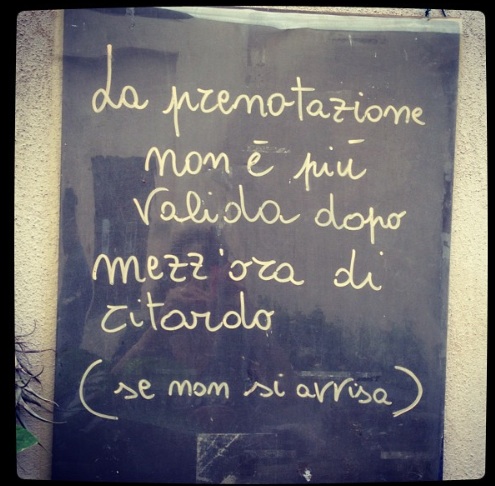 La prenotazione
non è più
valida dopo
mezz'ora di
ritardo
(se non si avvisa)